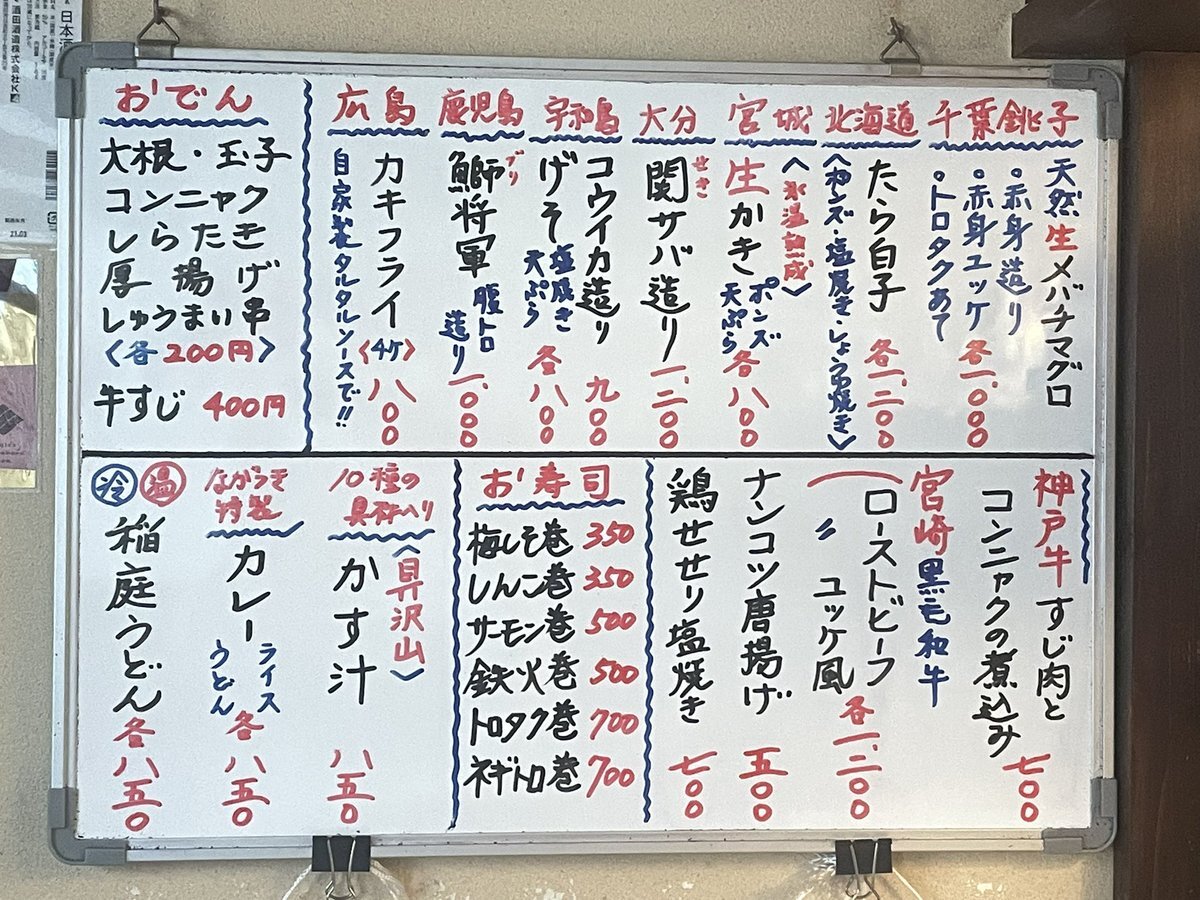 日本酒
酒田酒造株式会社K
千葉銚子
天然生メバチマグロ
・赤身造り
・赤身ユッケ
・トロタクあて
各一、〇〇〇
北海道
たら白子
〈ポンズ・塩焼き・しょうゆ焼き〉
各一、二〇〇
宮城
〈氷温熟成〉
生かき
ポンズ
天ぷら
各八〇〇
大分
せき
関サバ造り
一、二〇〇
宇和島
コウイカ造り
九〇〇
げそ
塩焼き
天ぷら
各八〇〇
鹿児島
ブリ
鰤将軍
腹トロ
造り
一、〇〇〇
広島
カキフライ
〈4ケ〉
八〇〇
自家製タルタルソースで!!
おでん
大根・玉子
コンニャク
しらたき
厚揚げ
しゅうまい串
〈各200円〉
牛すじ 400円
神戸牛すじ肉と
コンニャクの煮込み
七〇〇
宮崎黒毛和牛
ローストビーフ
〃 ユッケ風
各一、二〇〇
ナンコツ唐揚げ
五〇〇
鶏せせり塩焼き
七〇〇
お寿司
梅しそ巻 350
しんこ巻 350
サーモン巻 500
鉄火巻 500
トロタク巻 700
ネギトロ巻 700
10種の
具材入り
〈具沢山〉
かす汁
八五〇
ながらそ
特製
カレー
ライス
うどん
各八五〇
冷 温
稲庭うどん
各八五〇